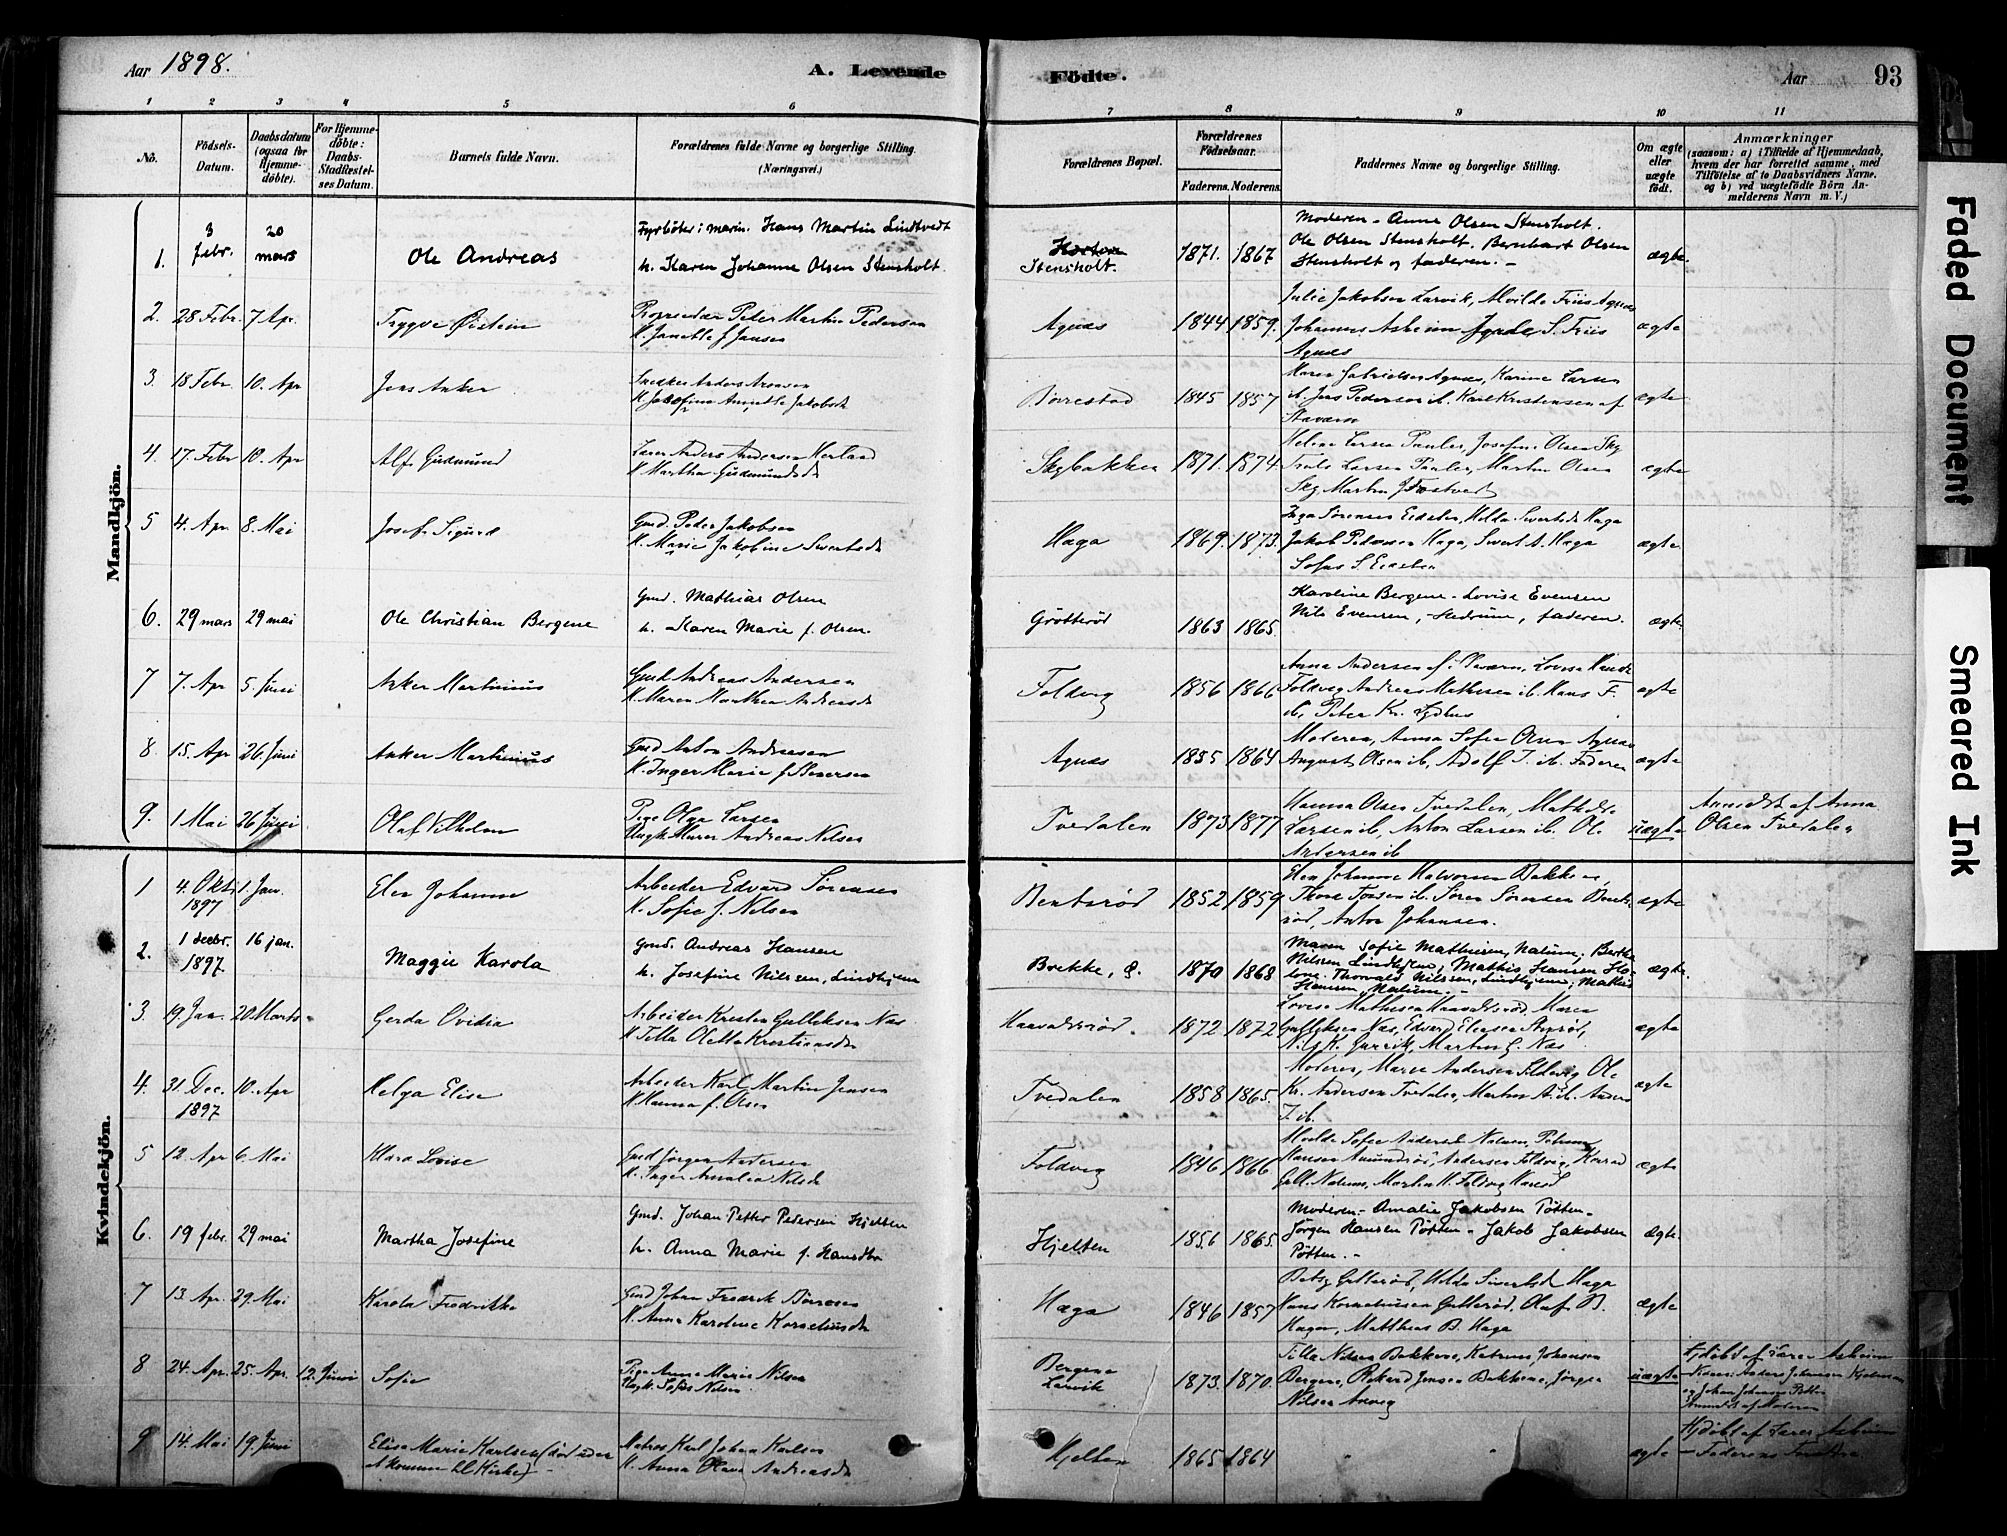 Aar 1898.
A. Levende
Födte.
Aar
93
1 2 3 4 5 6 7 8 9 10 11
No.
Födsels-Datum.
Daabsdatum (ogsaa for Hjemme-döbte).
For Hjemme-döbte: Daabs-Stadfæstel-ses Datum.
Barnets fulde Navn.
Forældrenes fulde Navne og borgerlige Stilling. (Næringsvei.)
Forældrenes Bopæl.
Forældrenes Födselsaar.
Faderens. Moderens.
Faddernes Navne og borgerlige Stilling.
Om ægte eller uægte födt.
Anmærkninger
(saasom: a) i Tilfælde af Hjemmedaab, hvem der har forrettet samme, med Tilföielse af to Daabsvidners Navne. og b) ved uægtefödte Börn An-melderens Navn m. V.)
Mandkjön.
1. 3 febr. 20 mars Ole Andreas
Fyrböter i marin. Hans Martin Lindtvedt
h. Karen Johanne Olsen Stensholt.
Stensholt. 1871. 1867
Moderen - Anne Olsen Stensholt.
Ole Olsen Stensholt. Bernhart Olsen
Stensholt og faderen. -
ægte.
2. 28 Febr. 7 Apr. Trygve Øistein
Peter Martin Pedersen
H. J Jansen
Agnæs 1844 1859.
Julie Jakobsen Larvik, Friis Agnæs
Johannes Askeim S. Friis
Agnæs
ægte
3. 18 Febr. 10. Apr Jens Anker
Anders Aronsen
Børrestad 1845 1857
Maren Gabrielsen Agnæs, Karine Larsen
ib. Jens Pedersen ib. Karl Kristensen af
Stavern
ægte
4. 17. Febr 10. Apr Alf Gudmund
Anders Andersen
H. Martha Gudmundsdr
Skybakken 1871. 1874.
Helene Larsen Pauler, Josefine Olsen Sky
Larsen Pauler, Martin Olsen
Sky Martin
ægte
5 4. Apr 8. Mai Josef Sigurd
Gmd. Peder Jakobsen
H. Marie Jakobine Sivertsdr
Haga 1869. 1873.
Inga Sørensen Hilda Sivertsdr Haga
Jakob Pedersen Haga, Sivert A. Haga
Sofus S.
ægte
6. 29 mars 29 mai Ole Christian Bergene
Gmd. Mathias Olsen
h. Karen Marie f. Olsen.
Grötteröd 1863 1865.
Karoline Bergene - Lovise Evensen
Nils Evensen, Hedrum, faderen.
ægte.
7 7. Apr 5. Juni Anker Martinius
Gmd Andreas Andersen
H. Maren Marthea Andreasdr
Foldvig 1856 1866
Anna Andersen af Stavern, Lovise
Foldvig Andreas Mathisen ib. Hans F.
ib, Peter Kr.
ægte
8. 15. Apr 26. Juni Anker Martinius
Gmd Anton Andreasen
H. Inger Marie f.
Agnæs 1855 1864
Moderen, Anna Sofie Olsen Agnæs
August Olsen ib, Adolf J. ib. Faderen
ægte
9. 1 Mai 26 Juni Olaf Vilhelm
Pige Olga Larsen
Ungk. Murer Andreas Nilsen
Tvedalen 1873 1877
Hanna Olsen Tvedalen, Mathilde
Larsen ib, Anton Larsen ib. Ole
Andersen ib
uægte
Anmeldt af Anna
Olsen Tvedalen
Kvindekjön.
1 4. Okt. 1897 1. Jan. Elen Johanne
Arbeider Edvard Sørensen
H. Sofie f. Nilsen
Bentsrød 1852 1859
Elen Johanne Halvorsen Bakkene,
Thora ib. Søren Sørensen Bents-
rød, Anton Johansen.
ægte
2. 1 decbr. 1897. 16 jan. Maggie Karola
Gmd. Andreas Hansen
h. Josefine Nilssen, Lindhjem
Brekke, 1870 1868
Maren Sofie Mathisen, Nalum, Berthe
Nilsen Lindhjem, Mathis Hansen
Thorvald Nilssen, Lindhjem, Mathis
Hansen, Nalum. -
ægte.
3. 19. Jan. 20. Marts Gerda Ovidia
Arbeider Kristen Gulliksen Næs
H. Tilla Oletta Kristiansdr
Haavaldsrød. 1872 1872
Lovise Mathisen Haavaldsrød, Maren
Gulliksen Næs, Edvard Eliasen
Nils K. Martin G. Næs
ægte
4. 31. Dec. 1897 10. Apr Helga Elise
Arbeider Karl Martin Jensen
H. Hanna f. Olsen
Tvedalen 1858 1865.
Moderen, Maren Andersen Foldvig Ole
Kr. Andersen Tvedalen, Martin A. ib. Anders
J. ib.
ægte
5 12. Apr 6. Mai Klara Lovise
Gmd Jørgen Andersen
H. Inger Amalia Nilsdr
Foldvig 1846 1866
Sofie Nalum,
Hansen Andersen Foldvig, Konrad
Nalum, Martin H. Foldvig
ægte
6. 19 febr. 29 mai Martha Josefine
Gmd. Johan Petter Pedersen Hjelten
h. Anna Marie f. Hansdtr
Hjelten 1856 1865.
Moderen. - Amalie Jakobsen Pötten -
Jörgen Hansen Pötten - Jakob Jakobsen
Pötten. -
ægte.
7 13. Apr. 29. Mai Karola Fredrikke
Gmd Johan Fredrik Børresen
H. Anna Karoline Korneliusdr
Haga 1846 1857
Betsy Gutterød, Hilda Sivertsdr Haga
Hans Korneliussen Gutterød, Olaf B.
Hagen, Matthias B. Haga
ægte
8 24. Apr. 25. Apr. 12. Juni Sofie
Pige Anne Marie Nilsen
Ungk. Sofus Nilsen
Bergene Larvik 1873. 1870.
Tilla Nilsen Bakkene, Katrine Johansen
Bergene, Rikard Jensen Bakkene, Jørgen
Nilsen
uægte
Hjdöbt af Lærer Askeim
Anders Johansen
og Johan Johansen
Anmeldt af Moderen
9 14. Mai 19. Juni Elise Marie Karlsen (död uden
at komme til Kirke)
Matros Karl Johan Karlsen
H. Anna Olava Andreasdr
Hjelten 1865 1864 " "
ægte
Hjdöbt af Lærer Askeim
- Faderens
Faded Document
Smeared Ink